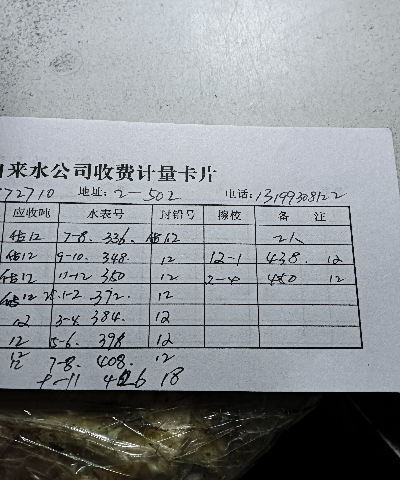 来水公司收费计量卡片
72710 地址:2-502 电话:13199308122
应收吨 水表号 封铅号 擦校 备 注
估12 7-8. 336. 估12 2人
估12 9-10. 348. 12 12-1 438. 12
估12 11-12 350 12 2-4 450 12
估12 1-2 372. 12
12 3-4 384. 12
12 5-6. 396 12
12 7-8. 408. 12
9-11 426 18